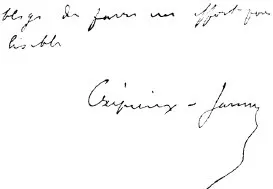 blige de faire un effort pour
lisible
Crépieux-Jamin